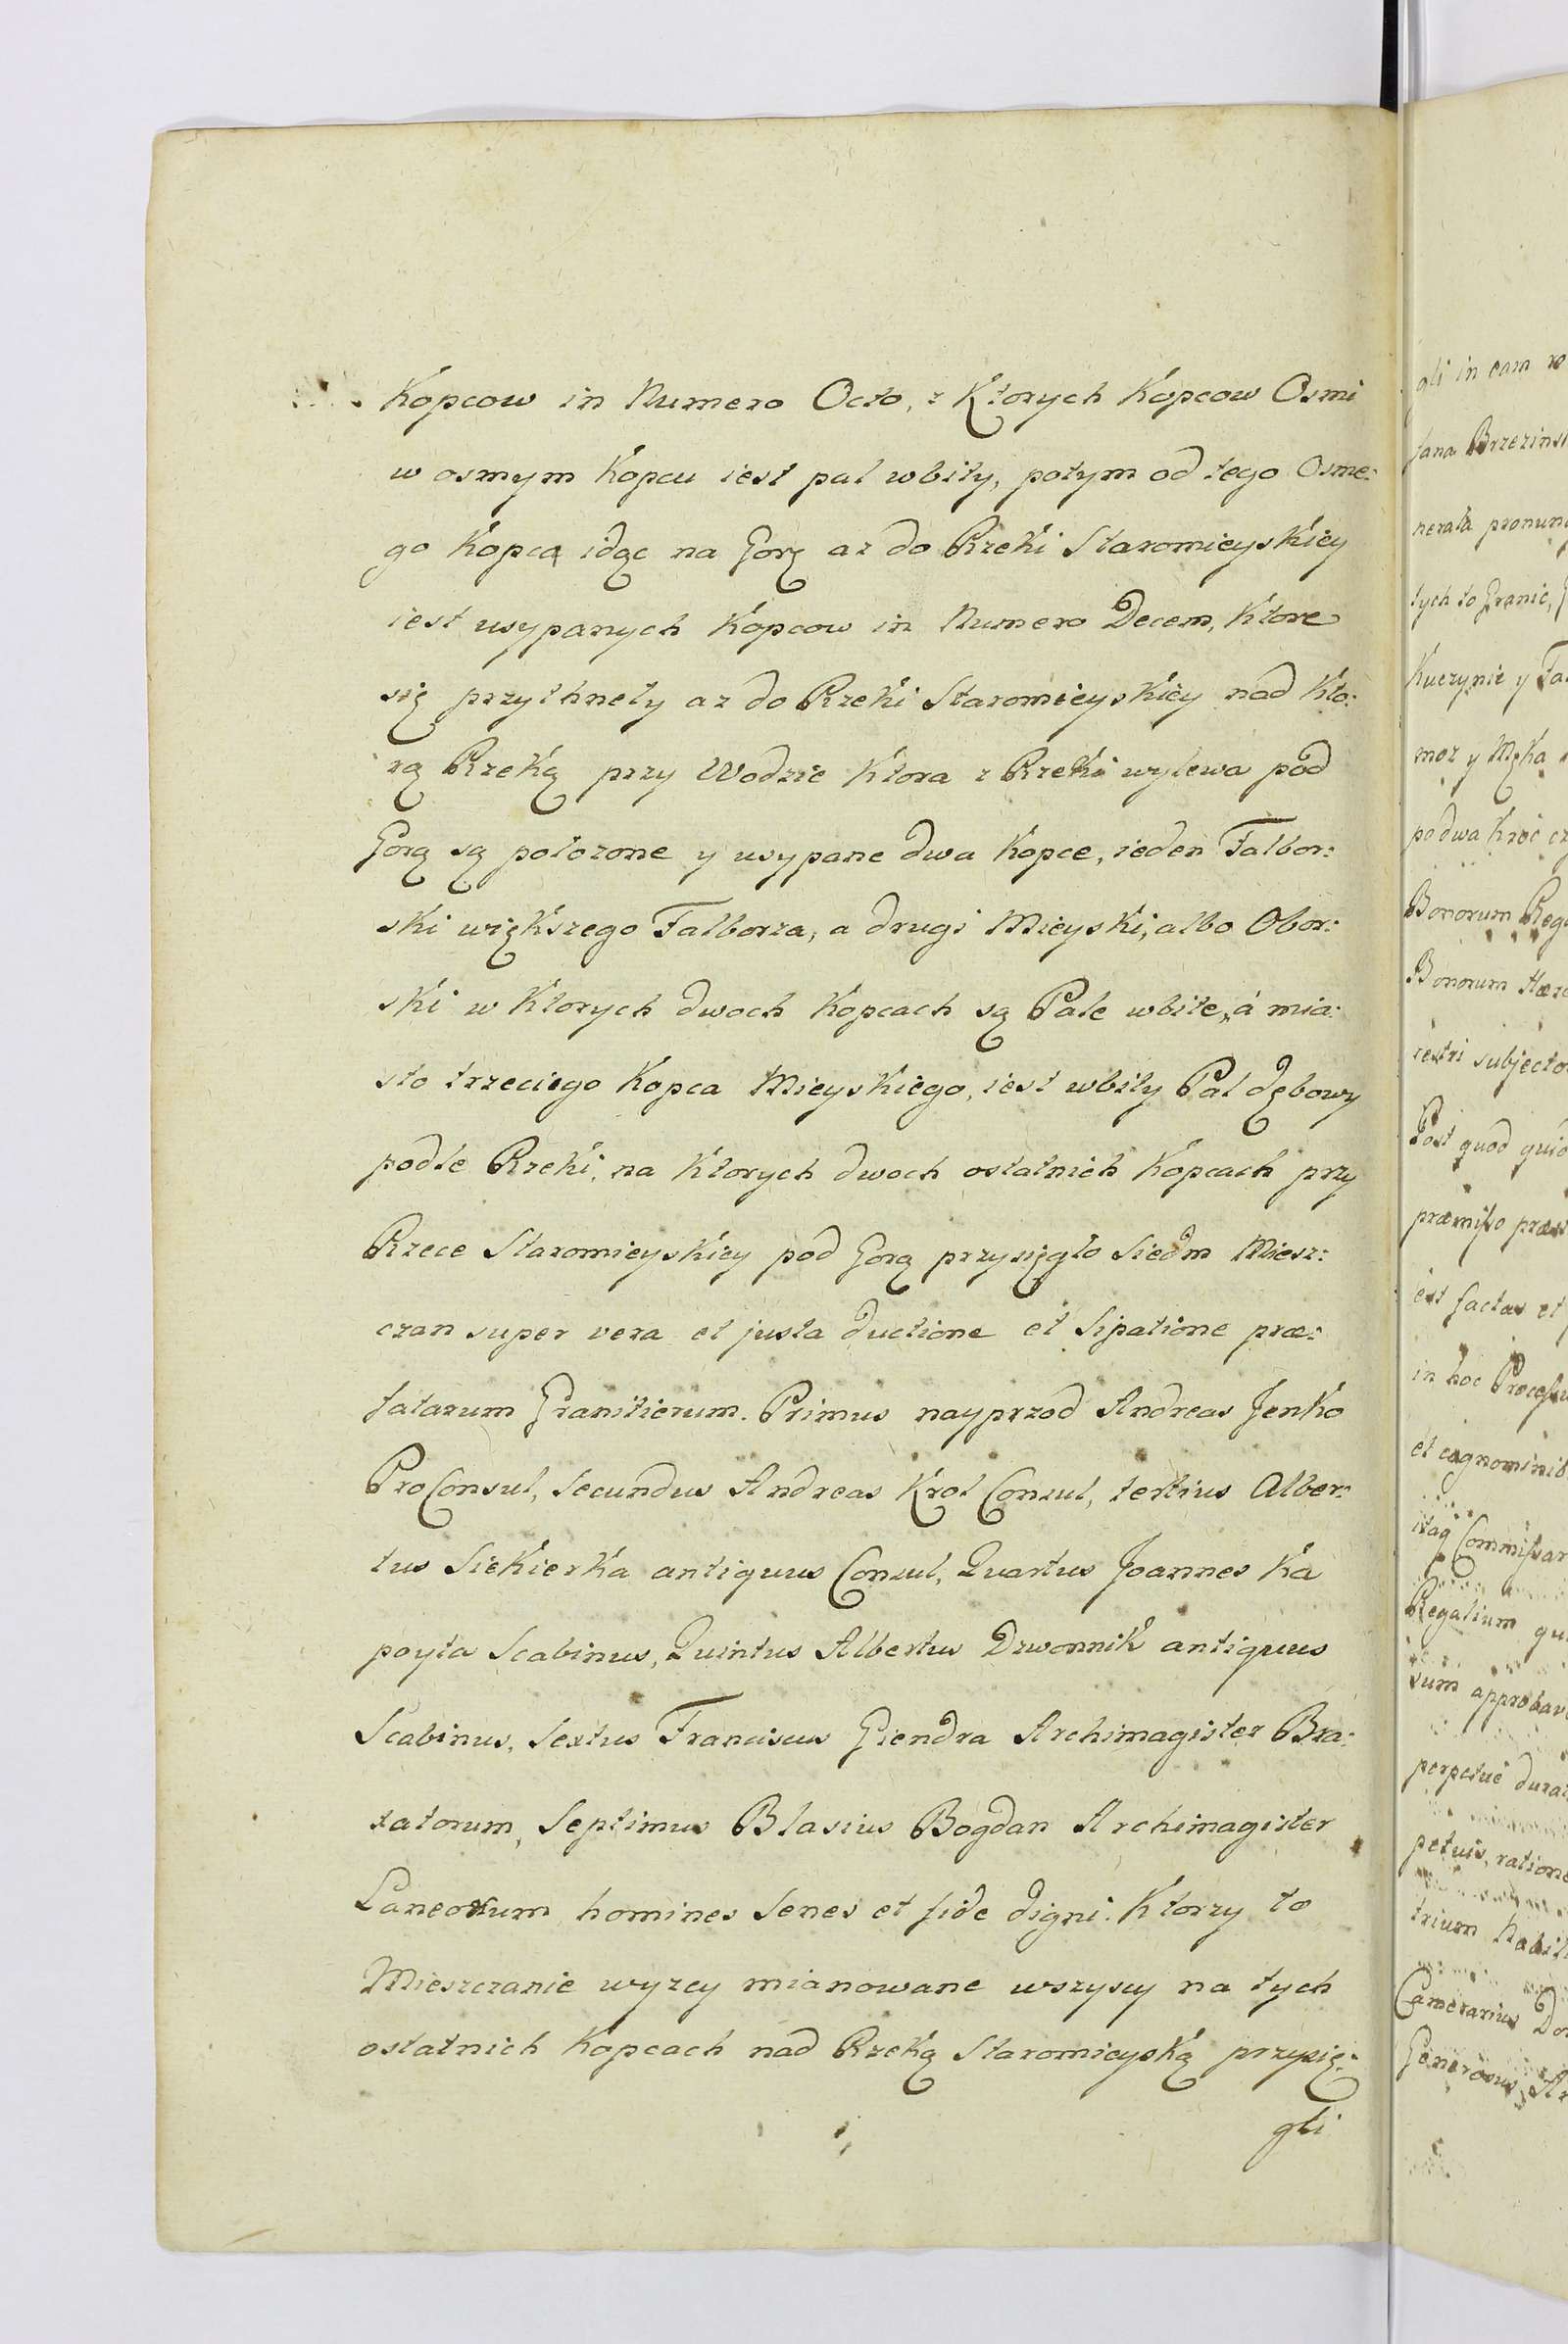 Kopcow in Numero Octo, z Ktorych Kopcow Osmi
w osmym Kopcu iest pal wbity, potym od tego Osme:
go Kopca idąc na Gorę az do Rzeki Staromieyskiey
iest usypanych Kopcow in Numero Decem, Ktore
się przythnety az do Rzeki Staromieyskiey nad Kto:
rą Rzeką przy Wodzie Ktora z Rzeki wylewa pod
Gorą są połozone y usypane dwa Kopce, ieden Falbor:
ski większego Falborza, a drugi Mieyski, albo Obor:
ski w Ktorych dwoch Kopcach są Pale wbite, á mia:
sto trzeciego Kopca Mieyskiego, iest wbity Pal dębowy
podle Rzeki, na Ktorych dwoch ostatnich Kopcach przy
Rzece Staromieyskiey pod Gorą przysięgło Siedm Miesz:
czan super vera et justa ductione et Sipatione præ:
fatarum Granitierum. Primus nayprzod Andreas Jenko
ProConsul, Secundus Andreas Krol Consul, tertius Alber:
tus Siekierka antiquus Consul, Quartus Joannes Ka
poyta Scabinus, Quintus Albertus Dzwonnik antiquus
Scabinus, Sextus Franciscus Giendra Archimagister Bra:
xatorum, Septimus Blasius Bogdan Archimagister
Laneorum homines Senes et fide digni. Ktorzy to
Mieszczanie wyzey mianowane wszyscy na tych
ostatnich Kopcach nad Rzeką Staromieyską przysię:
gli
gli in eam
fana Brzezinsk
nerała pronun
tych to Granic,
Kuczynie y
moz y Męka
po dwa kroć
Bonorum
Bonorum
subjecto
Post quod
præmisso
est factas et
in hoc
et cognominib
itaq Commissar
Regalium
sum approbav
perpetue dura
petuis, ratione
trium
Camerarius
Generosus